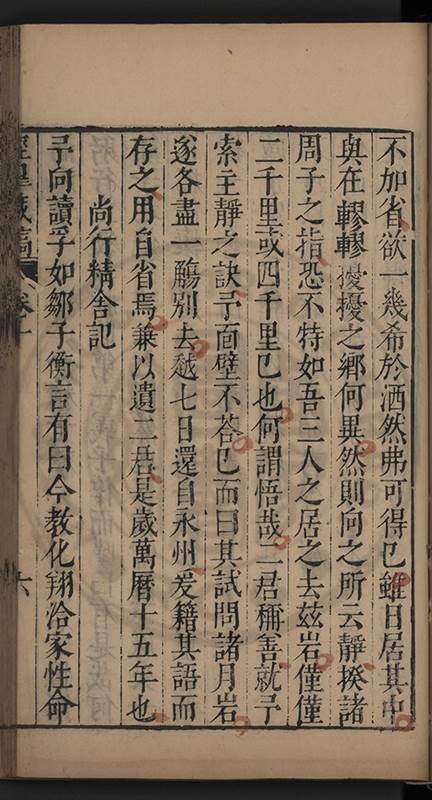 不加省欲一幾希於洒然弗可得已雖日居其中
與在轇轕擾擾之鄉何異然則向之所云靜揆諸
周子之指恐不特如吾三人之居之去玆岩僅僅
二千里或四千里已也何謂悟哉二君稱善就予
索主靜之訣予面壁不荅已而曰其試問諸月岩
遂各盡一觴別去越七日還自永州爰籍其語而
存之用自省焉兼以遺二君是歲萬曆十五年也
尚行精舍記
予向讀孚如鄒子衡言有曰今教化翔洽家性命
藏稿 卷十 六